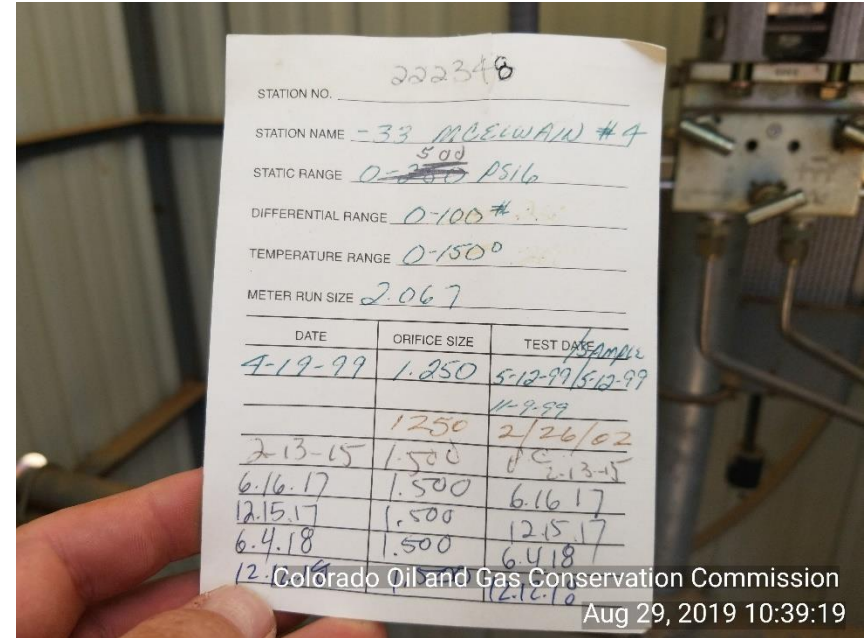 222348
STATION NO.
STATION NAME -33 MCELWAIN #4
500
STATIC RANGE 0-250 PSIG
DIFFERENTIAL RANGE 0-100#
TEMPERATURE RANGE 0-150°
METER RUN SIZE 2.067
DATE ORIFICE SIZE TEST DATE/SAMPLE
4-19-99 1.250 5-12-99/5-12-99
11-9-99
1250 2/26/02
2-13-15 1.500 2-13-15
6.16.17 1.500 6.16.17
12.15.17 1.500 12.15.17
6.4.18 1.500 6.4.18
Colorado Oil and Gas Conservation Commission
Aug 29, 2019 10:39:19